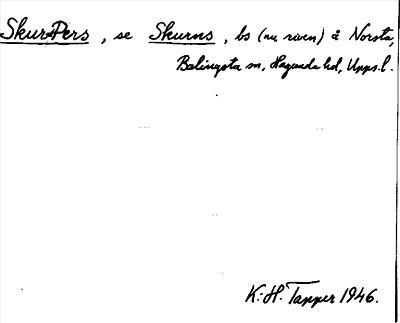 Skurs-Pers, se Skurns, bs (nu riven) å Norsta,
Balingsta sn, Hagunda hd, Upps. l.
K.-H. Tapper 1946.